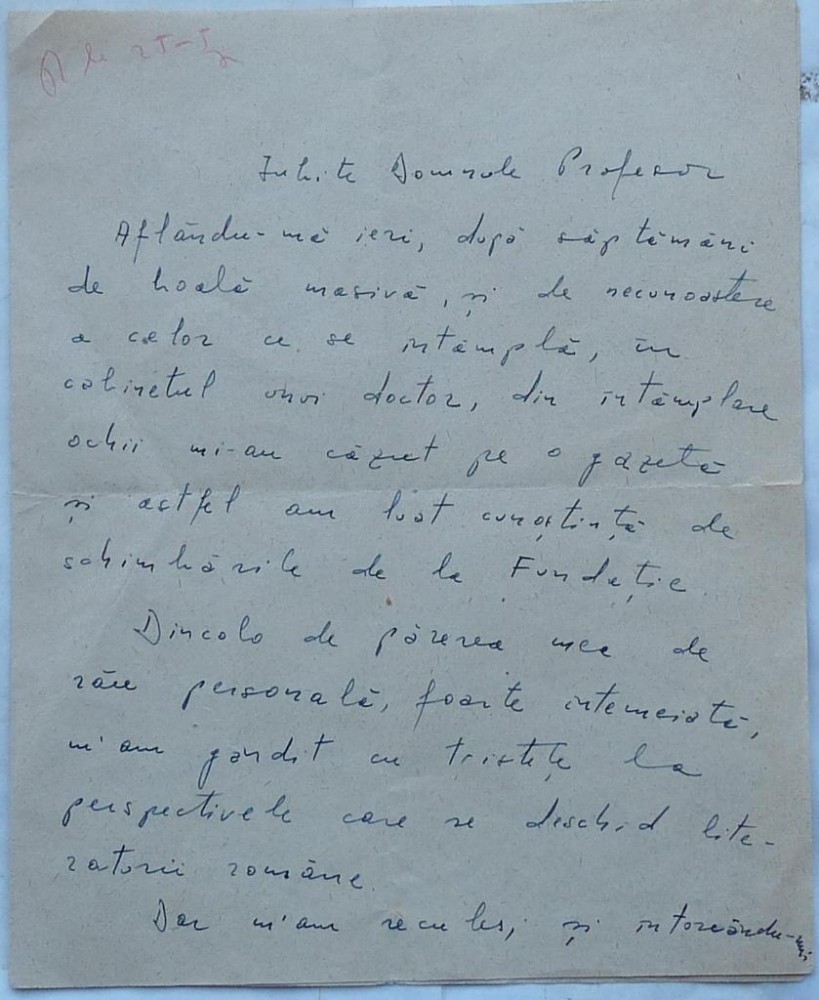 Iubite Domnule Profesor
Aflându-mă ieri, după săptămâni
de boală masivă, și de necunoaștere
a celor ce se întâmplă, în
cabinetul unui doctor, din întâmplare
ochii mi-au căzut pe o gazetă
și astfel am luat cunoștință de
schimbările de la Fundație.
Dincolo de părerea mea de
rău personală, foarte întemeiată,
m'am gândit cu tristețe la
perspectivele care se deschid lite-
raturii române.
Dar m'am recules, și întorcându-mi